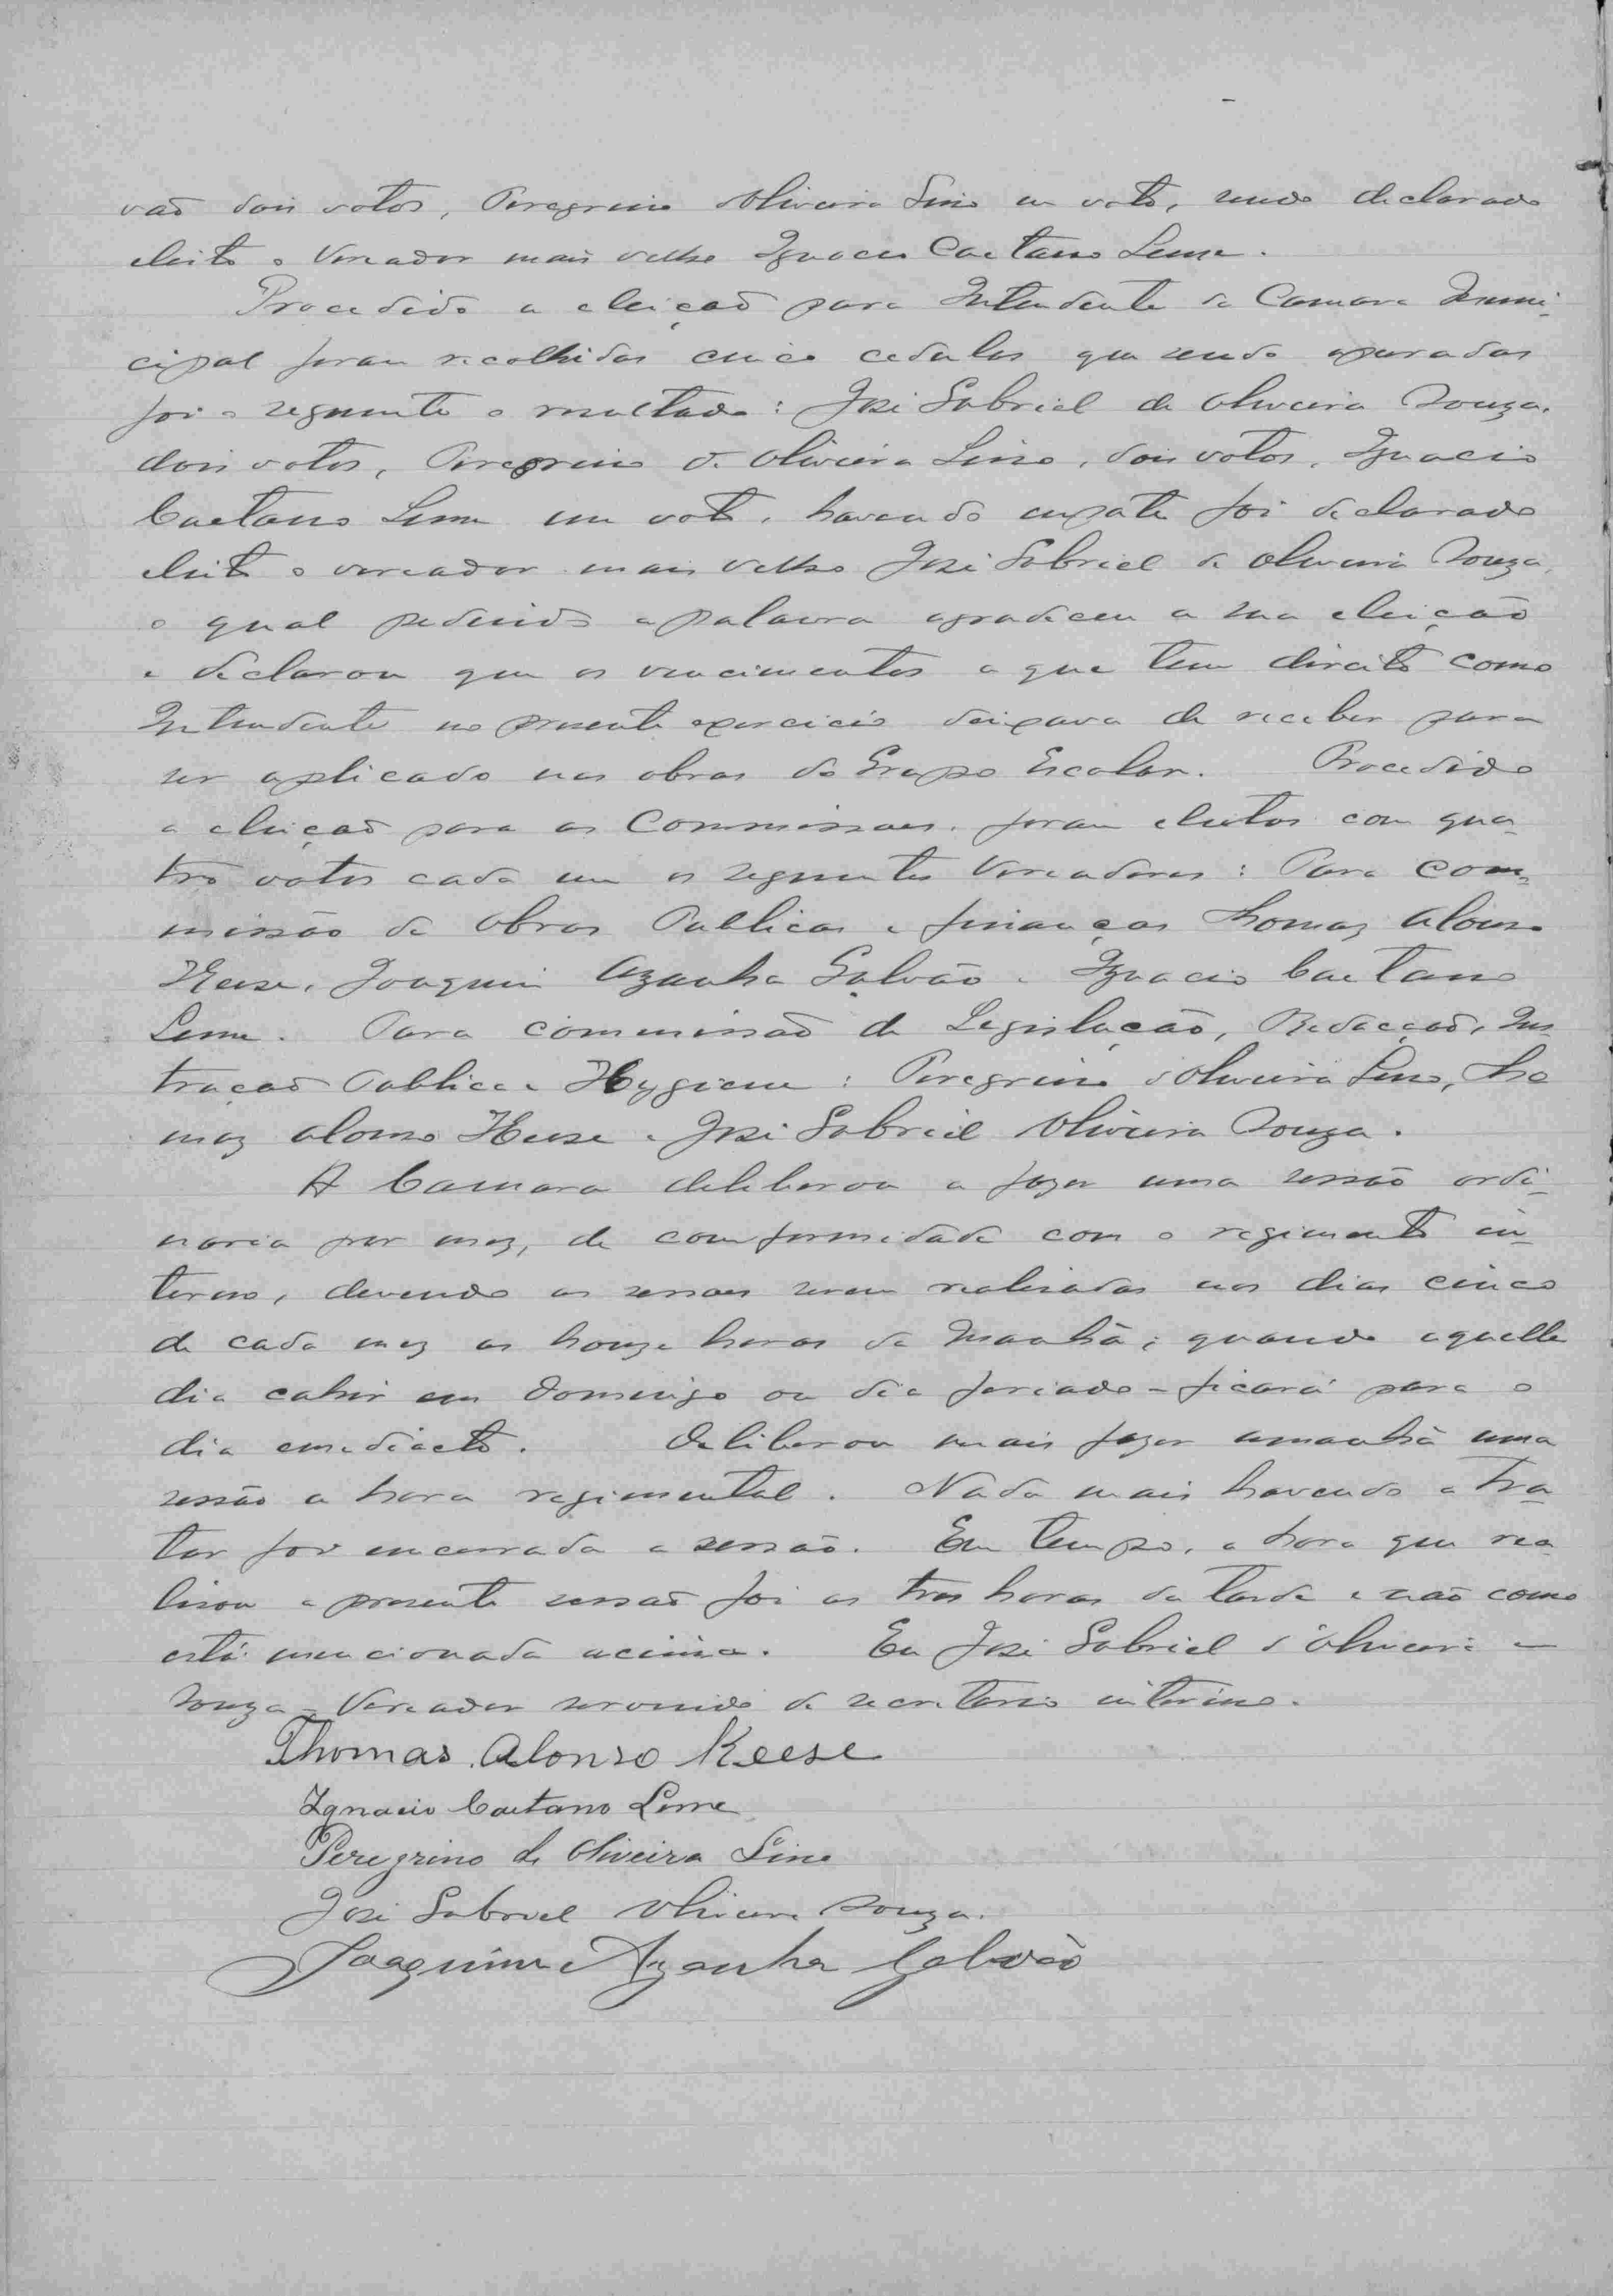 vaõ dois votos, Peregrino Oliveira Lino um voto, sendo declarado
eleito o Vereador mais velho Ignacio Caetano Leme.
Procedido a eleiçaõ para Intendente da Camara Muni-
cipal foram recolhidas cinco cedulas que sendo apuradas
foi o seguinte o resultado: José Gabriel de Oliveira Souza,
dois votos, Peregrino de Oliveira Lino, dois votos, Ignacio
Caetano Leme um voto, havendo empate foi declarado
eleito o vereador mais velho José Gabriel de Oliveira Souza,
o qual pedindo a palavra agradeceu a sua eleição
e declarou que os vencimentos a que tem direito como
Intendente no presente exercicio deixava de receber para
ser aplicado nas obras do Grupo Escolar. Procedido
a eleiçaõ para as Commissoes, foram eleitos com qua-
tro votos cada um os seguintes Vereadores: Para com-
missão de Obras Publicas e finanças Thomaz Alonso
Keese, Joaquim Azanha Galvão e Ignacio Caetano
Leme. Para commissaõ de Legislação, Redacçaõ, Ins-
truçaõ Publica e Hygiene: Peregrino d'Oliveira Lino, Tho-
maz Alonso Keese e José Gabriel Oliveira Souza.
A Camara deliberou a fazer uma sessão ordi-
naria por mez, de comformidade com o regimento in-
terno, devendo as sessoes serem realisadas nos dias cinco
de cada mez as honze horas da Manhã; quando aquelle
dia cahir em Domingo ou dia feriado - ficará para o
dia emediacto. Deliberou mais fazer amanhã uma
sessão a hora regimental. Nada mais havendo a tra-
tar foi encerrada a sessão. Em tempo, a hora que rea-
lisou a presente sessaõ foi as tres horas da tarde e naõ como
está mencionada acima. Eu José Gabriel d'Oliveira e
Souza - Vereador servindo de secretario interino.
Thomas Alonso Keese
Ignacio Caetano Leme
Peregrino de Oliveira Lino
José Gabriel Oliveira Souza.
Joaquim Azanha Galvão